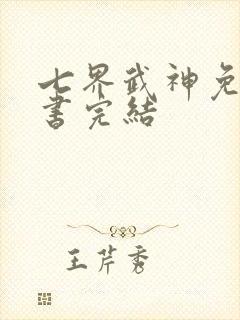 七界武神免
書完結
王芹秀